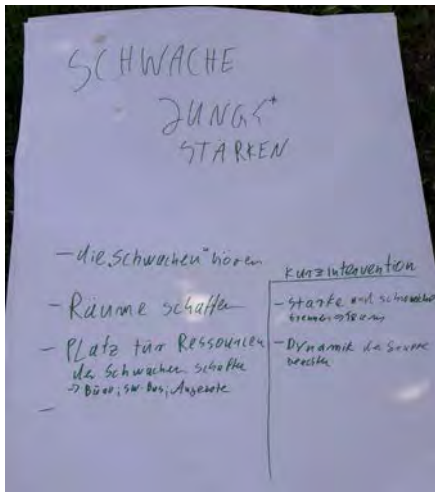 SCHWACHE
JUNGS*
STÄRKEN
- die "Schwachen" hören
- Räume schaffen
- Platz für Ressourcen
der Schwachen schaffen
→ Büro, Angebote
-
Kurzintervention
- Starke und schwache
- Dynamik der Gruppe
beachten